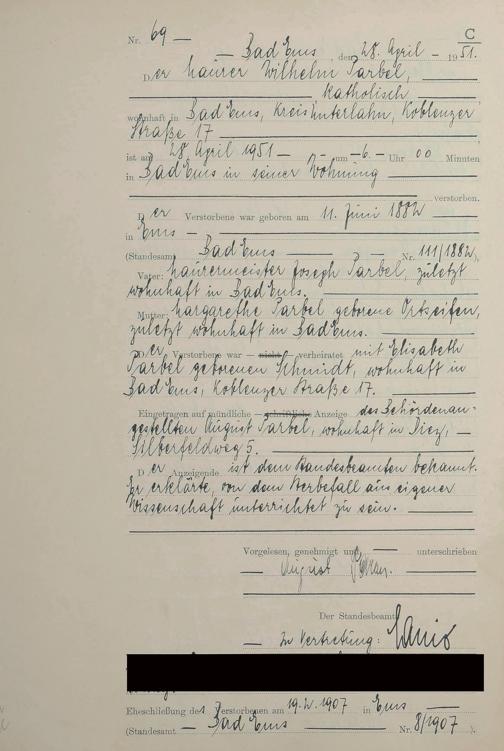 C
Nr. 69 —
— Bad Ems, den 28. April — 1951.
Der Maurer Wilhelm Parbel,
katholisch
wohnhaft in Bad Ems, Kreis Unterlahn, Koblenzer
Straße 17
ist am 28. April 1951 — um — 6 — Uhr 00 Minuten
in Bad Ems in seiner Wohnung
verstorben.
Der Verstorbene war geboren am 11. Juni 1882
in Ems —
(Standesamt Bad Ems — Nr. 111/1882).
Vater: Maurermeister Joseph Parbel, zuletzt
wohnhaft in Bad Ems.
Mutter: Margarethe Parbel geborene Ortseifen,
zuletzt wohnhaft in Bad Ems.
Der Verstorbene war — nicht — verheiratet mit Elisabeth
Parbel geborenen Schmidt, wohnhaft in
Bad Ems, Koblenzer Straße 17.
Eingetragen auf mündliche — schriftliche Anzeige des Behördenan-
gestellten August Parbel, wohnhaft in Diez, —
Silberfeldweg 5.
Der Anzeigende ist dem Standesbeamten bekannt.
Er erklärte, von dem Sterbefall aus eigener
Wissenschaft unterrichtet zu sein. —
Vorgelesen, genehmigt und — unterschrieben
— August
Der Standesbeamte
— In Vertretung:
Eheschließung des Verstorbenen am 19.2.1907 in Ems
(Standesamt — Bad Ems — Nr. 8/1907).